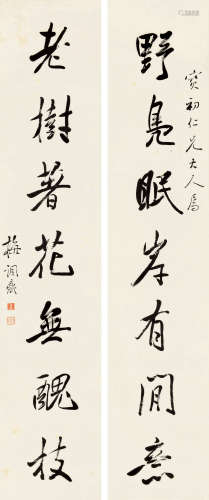 寶初仁兄大人屬
野鳧眠岸有閒意
老樹著花無醜枝
梅調鼎